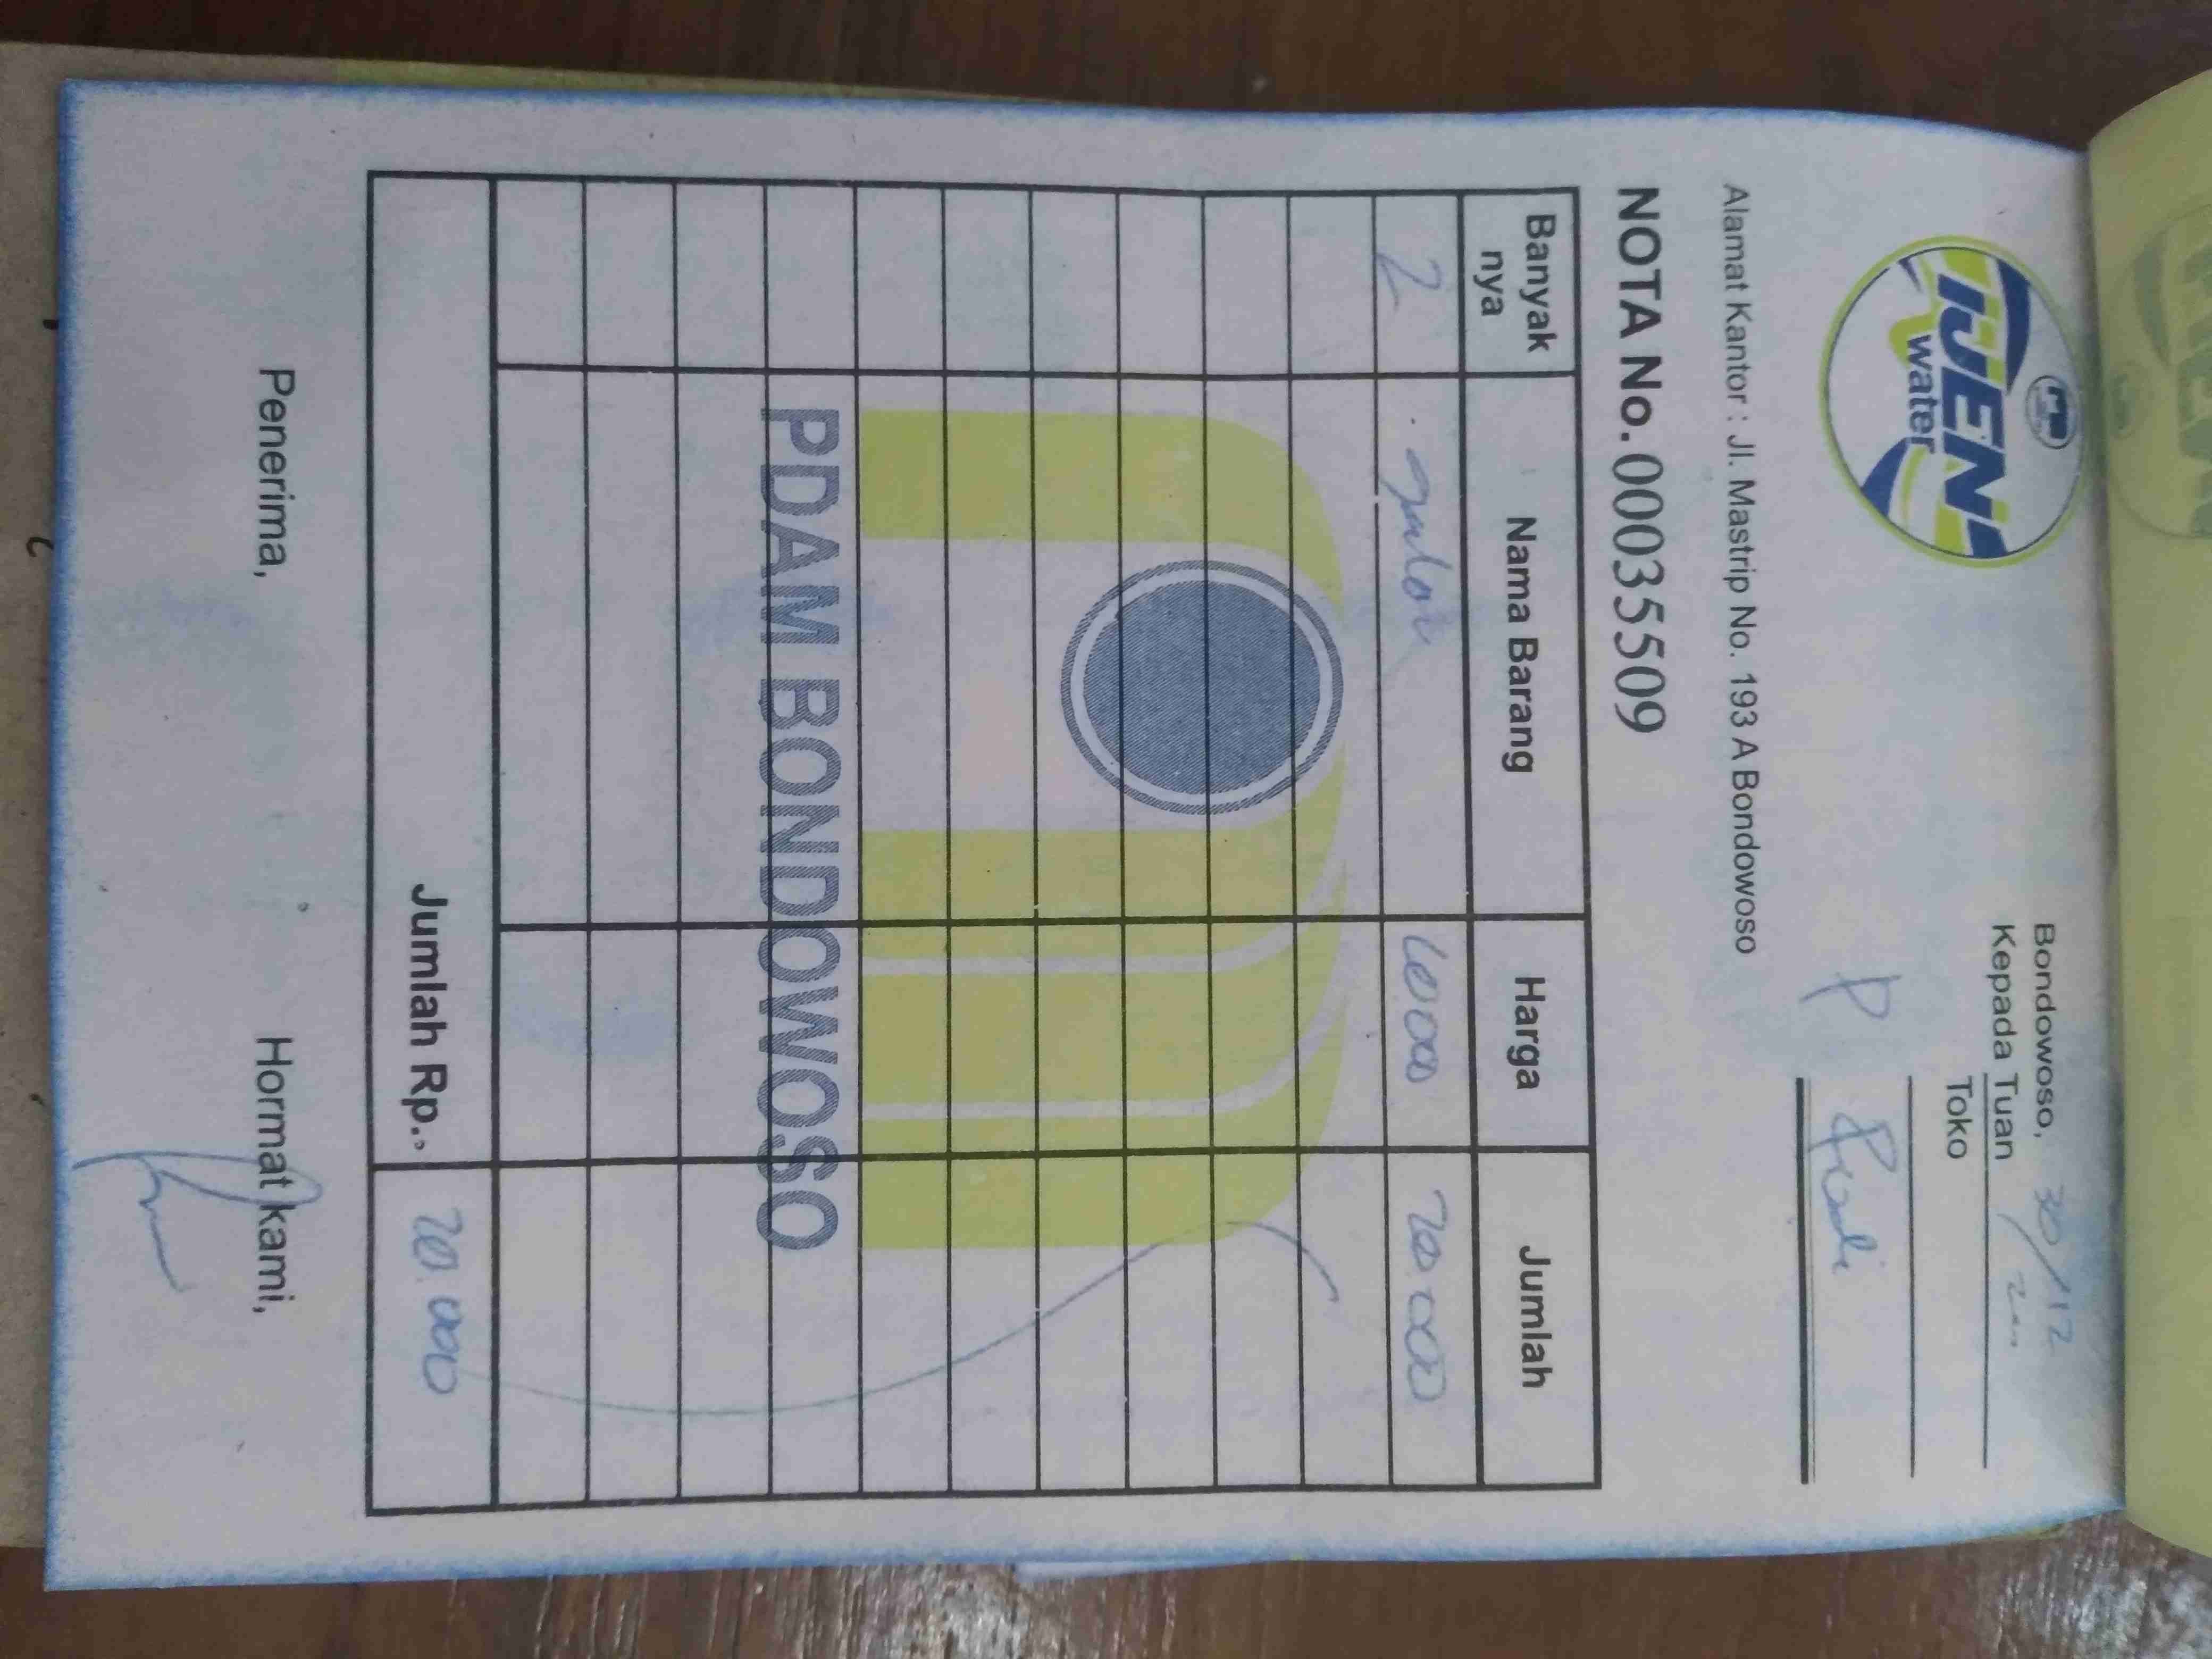 IJEN
water
Bondowoso, 30/12
Kepada Tuan
Toko
P Rudi
Alamat Kantor : Jl. Mastrip No. 193 A Bondowoso
NOTA No. 00035509
Banyak nya Nama Barang Harga Jumlah
2 galon 10.000 20.000
PDAM BONDOWOSO
Jumlah Rp. 20.000
Penerima, Hormat kami,